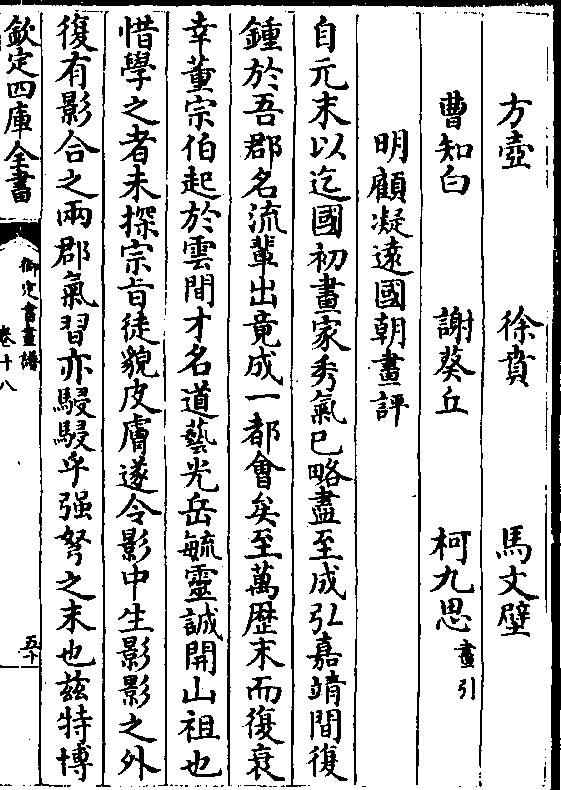 方壺　徐賁　馬文璧
曹知白　謝葵丘　柯九思畫引
明顧凝遠國朝畫評
自元末以迄國初畫家秀氣已略盡至成弘嘉靖間復
鍾於吾郡名流輩出竟成一都會矣至萬歴末而復衰
幸董宗伯起於雲間才名道藝光岳毓靈誠開山祖也
惜學之者未探宗旨徒貌皮膚遂令影中生影影之外
復有影合之兩郡氣習亦駸駸乎强弩之末也兹特博
欽定四庫全書
御定書畫譜
卷十八
五十